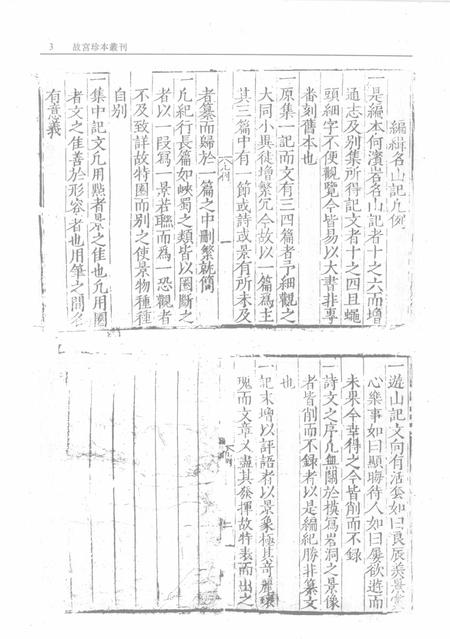 3 故宮珍本叢刊
編緝名山記凡例
一是編本何濱岩名山記者十之六而增
通志及別集所得記文者十之四且蠅
頭細字不便觀覽今皆易以大書非專
畨刻舊本也
一原集一記而文有三四篇者予細觀之
大同小異徒增繁冗今故以一篇爲主
其三篇中有一節或詩或景有所未及
者纂而歸於一篇之中刪繁就簡
一凡紀行長篇如峽蜀之類皆以圈斷之
者以一段爲一景若聯而爲一恐觀者
不及致詳故特圈而別之使景物種種
自別
一集中記文凡用㸃者景之佳也凡用圈
者文之佳善於形容者也用筆之間各
有意義
一遊山記文向有活套如曰良辰美景賞
心樂事如曰顯晦待人如曰屢欲遊而
未果今幸得之今皆削而不錄
一詩文之序凡無關於模寫岩洞之景像
者皆削而不錄者以是編紀勝非纂文
也
一記末增以評語者以景象極其奇麗瓌
瑰而文章又盡其發揮故特表而出之